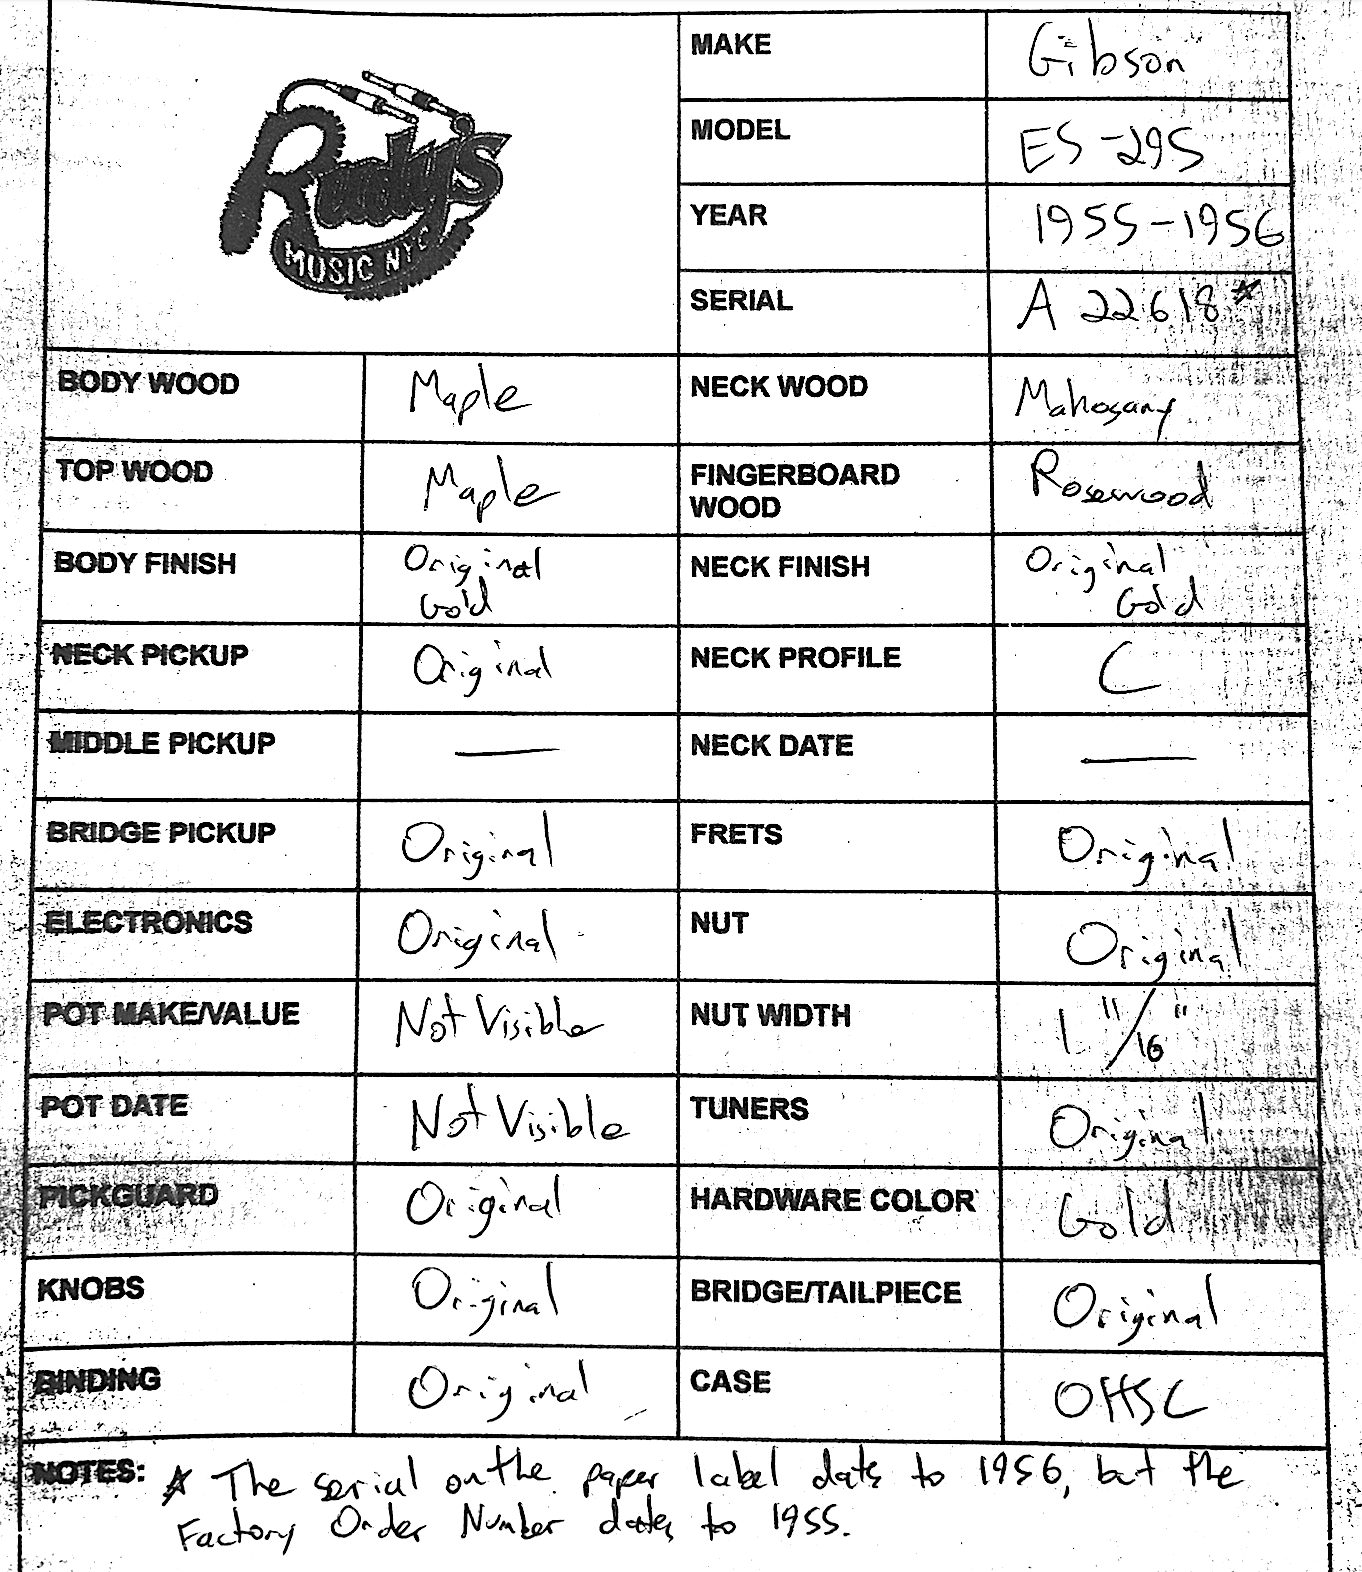 Rudy's
MUSIC NYC
MAKE Gibson
MODEL ES-295
YEAR 1955-1956
SERIAL A 22618*
BODY WOOD Maple NECK WOOD Mahogany
TOP WOOD Maple FINGERBOARD WOOD Rosewood
BODY FINISH Original Gold NECK FINISH Original Gold
NECK PICKUP Original NECK PROFILE C
MIDDLE PICKUP — NECK DATE —
BRIDGE PICKUP Original FRETS Original
ELECTRONICS Original NUT Original
POT MAKE/VALUE Not Visible NUT WIDTH 1 11/16"
POT DATE Not Visible TUNERS Original
PICKGUARD Original HARDWARE COLOR Gold
KNOBS Original BRIDGE/TAILPIECE Original
BINDING Original CASE OHSC
NOTES: * The serial on the paper label dates to 1956, but the
Factory Order Number dates to 1955.